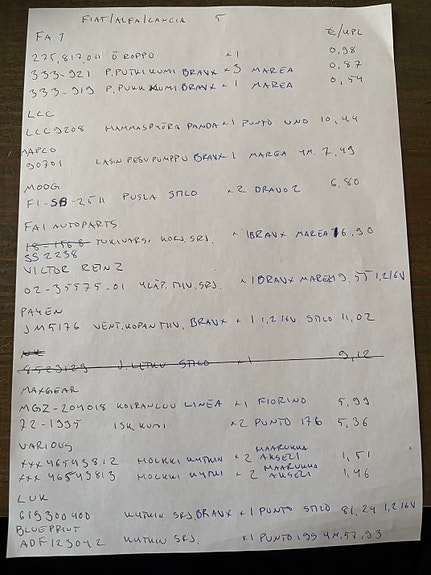 FIAT/ALFA/LANCIA 5
FA 1 €/KPL
275,817,011 Ö ROPPO ×1 0,98
333-921 P.PUTKI KUMI BRAVX ×3 MAREA 0,87
333-919 P.PUKK KUMI BRAVX ×1 MAREA 0,54
LCC
LCC9208 HAMMASPYÖRÄ PANDA ×1 PUNTO UNO 10,44
MAPCO
90701 LASIN PESUPUMPPU BRAVX 1 MAREA YM. 7,49
MOOG
FI-SB-2511 PUSLA STILO ×2 6,80
FAI AUTOPARTS
TUKIVARSI KORJ.SRJ. ×1 BRAVX MAREA 16,90
SS2238
VICTOR REINZ
02-35575-01 YLÄP.TIIV.SRJ. ×1 BRAVX MAREA 19,55 1,2/16V
PAYEN
JM5176 VENT.KOPAN TIIV. BRAVX ×1 1,2/16V STILO 11,02
8529129 J.LETKU STILO ×1 9,12
MAXGEAR
MGZ-204018 KOIRANLUU LINEA ×1 FIORINO 5,99
72-1995 ISK.KUMI ×2 PUNTO 176 5,36
VARIOUS
XXX 46543812 HOLKKI KYTKIN ×2 MAARUKKA AKSELI 1,51
XXX 46543813 HOLKKI KYTKI ×2 MAARUKKA AKSELI 1,46
LUK
619300400 KYTKIN SRJ. BRAVX ×1 PUNTO STILO 81,24 1,2/16V
BLUEPRINT
ADF123042 KYTKIN SRJ. ×1 PUNTO 199 YM. 57,93